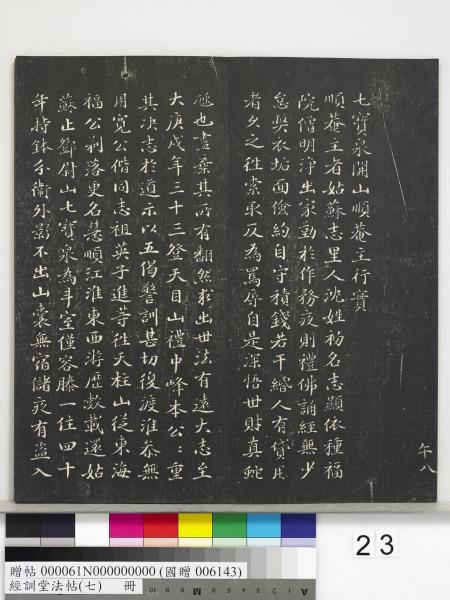 七寶泉開山順菴主行實
順菴主者姑蘇志里人沈姓初名志顯依種福
院僧明淨出家勤於作務夜則禮佛誦經無少
怠獘衣垢面儉約自守積錢若干緡人有貸用
者久之往索取反為罵辱自是深悟世財真蛇
虺也盡棄其所有翻然求出世法有遠大志至
大庚戌年三十三登天目山禮中峰本公公重
其決志於道示以五偈警訓甚切復渡淮叅無
用寬公偕同志祖英子進等往天柱山從東海
福公剃落更名慧順江淮東西游歷數載還姑
蘇止鄧尉山七寶泉為斗室僅容膝一住四十
年持鉢外影不出山囊無宿儲夜有盜入
午八
23
贈帖 000061N000000000 (國贈 006143)
經訓堂法帖(七) 冊